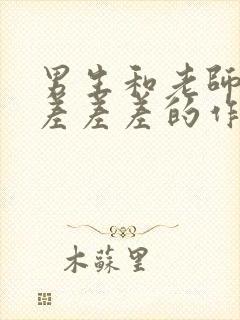 男生和老师
差差差的作
木蘇里